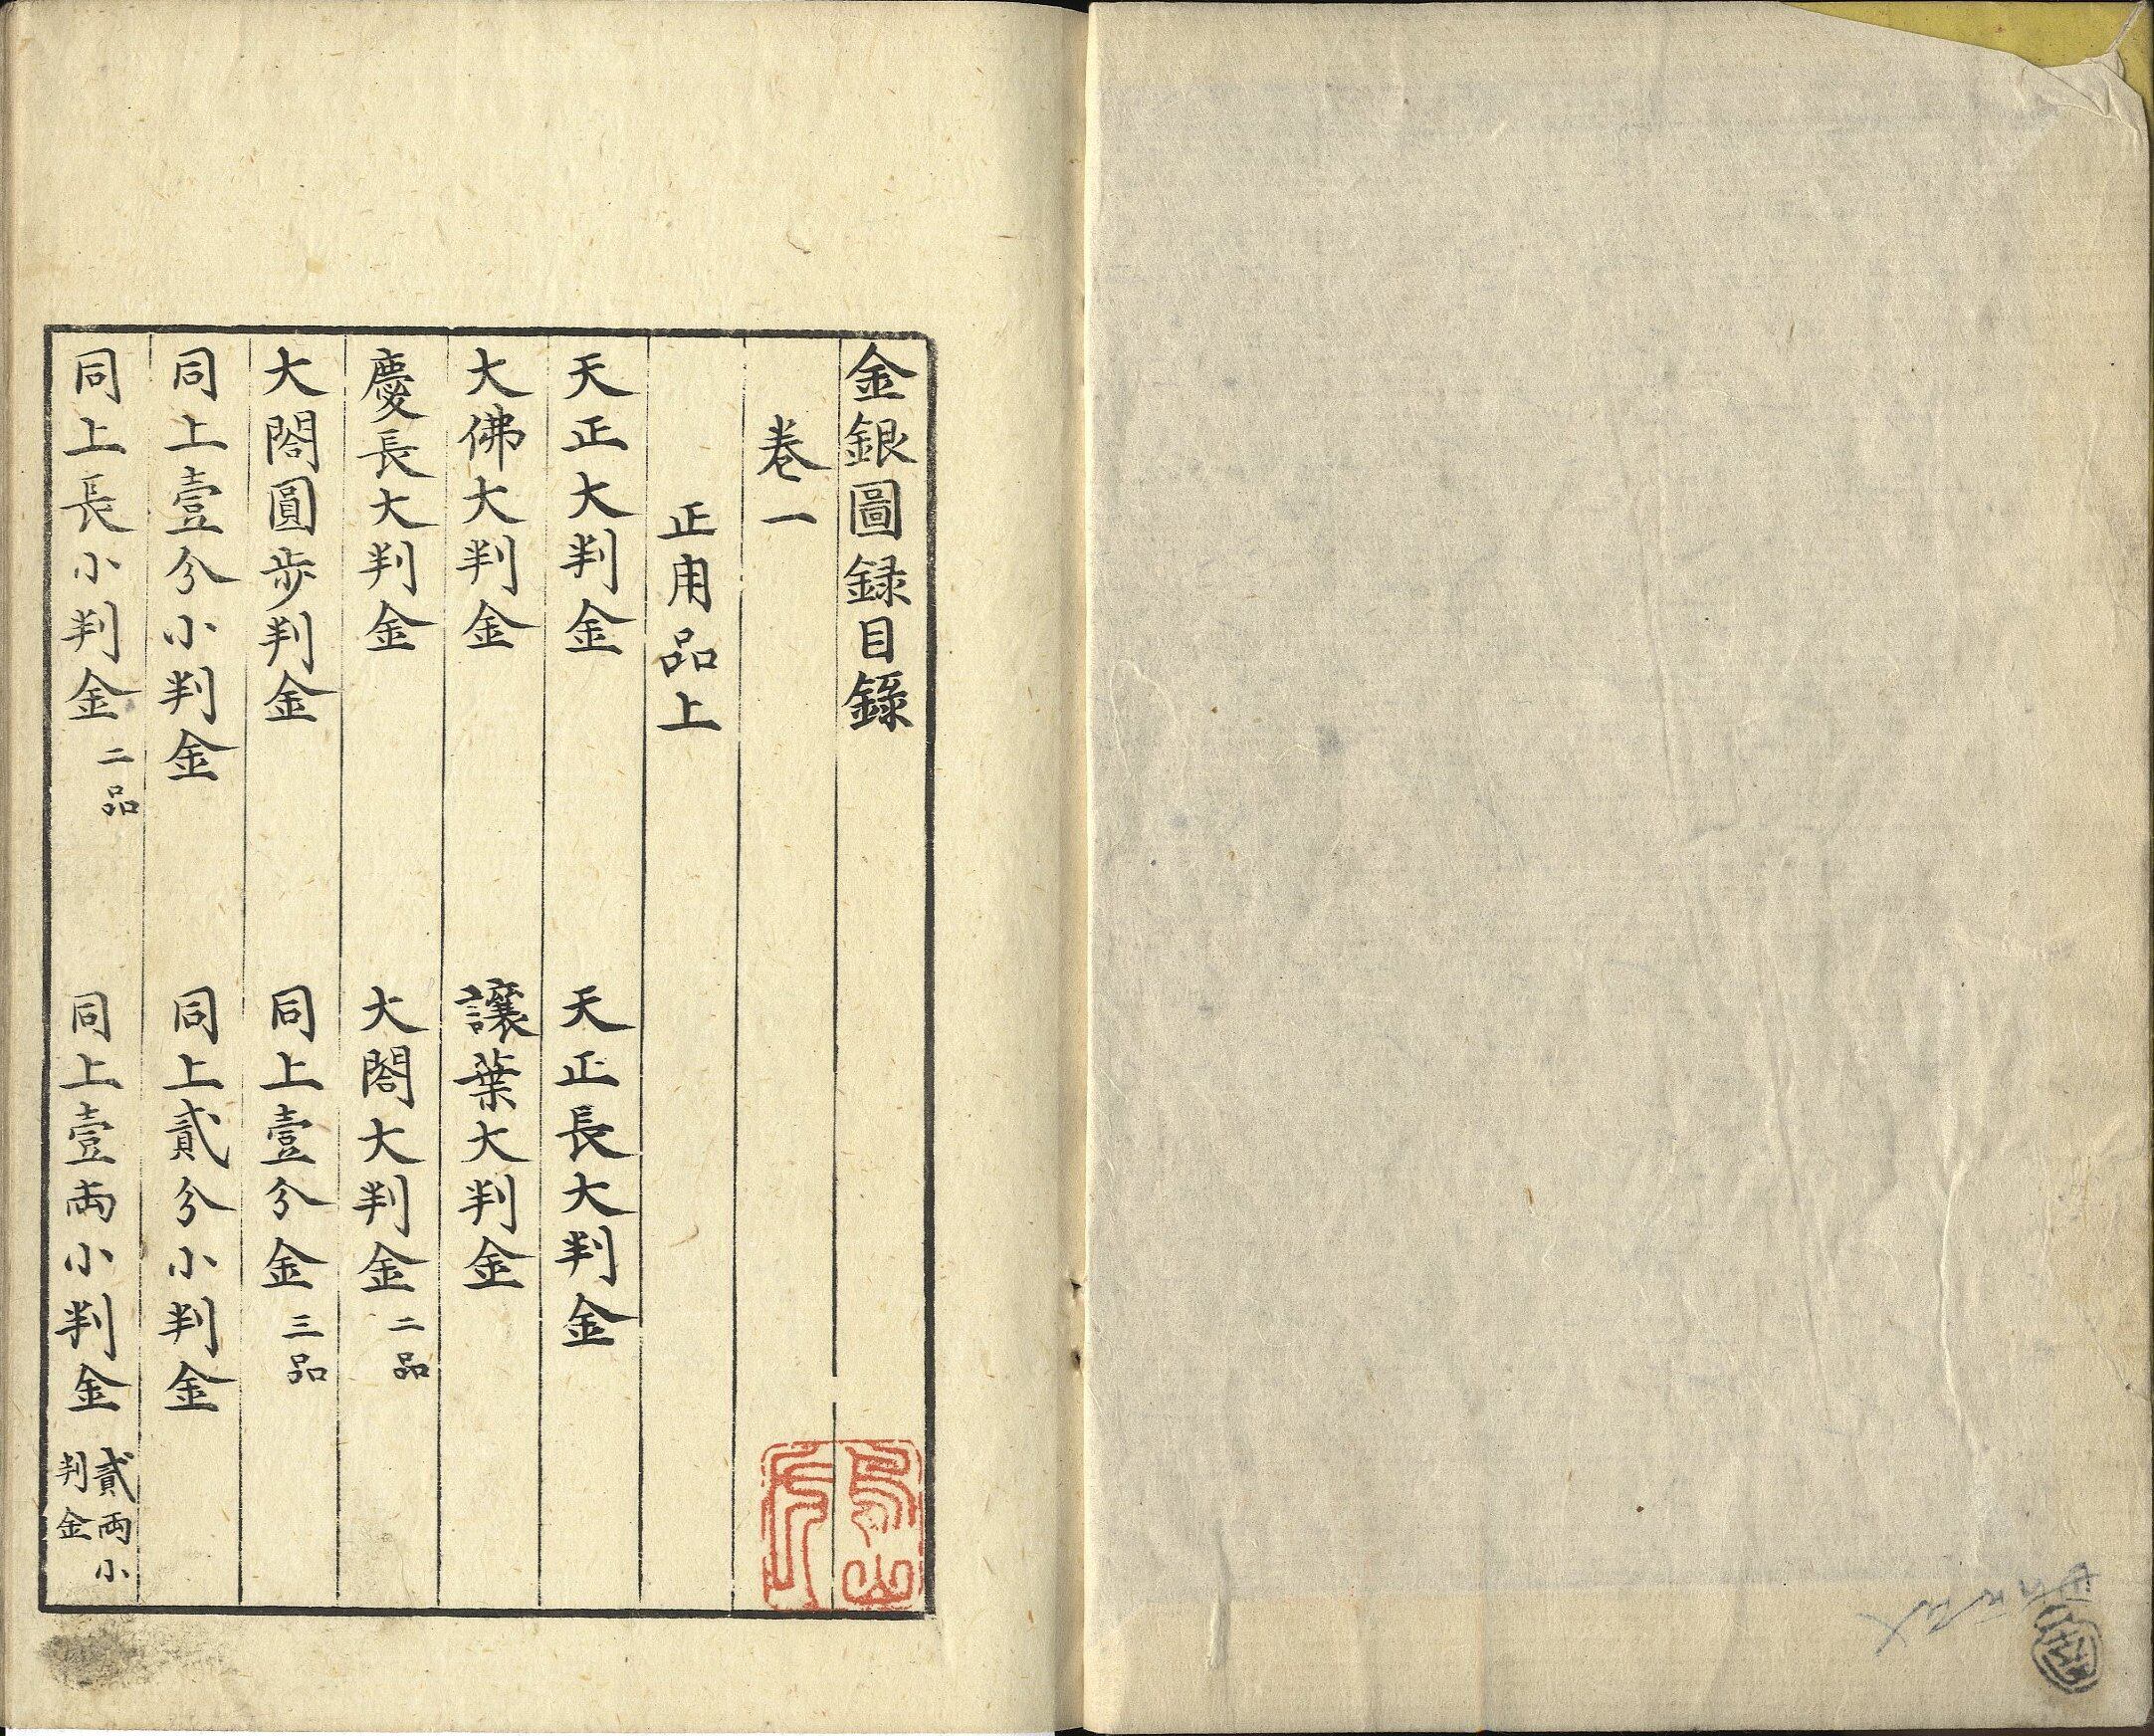 金銀圖録目錄
卷一
正用品上
天正大判金
天正長大判金
大佛大判金
讓葉大判金
慶長大判金
大閤大判金 二品
大閤圓歩判金
同上壹分金 三品
同上壹分小判金
同上貳分小判金
同上長小判金 二品
同上壹両小判金 貳両小
判金